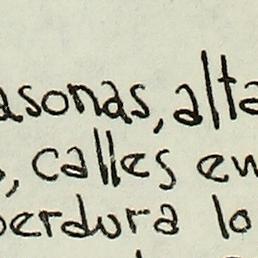 asonas, alta
, calles en
perdura lo